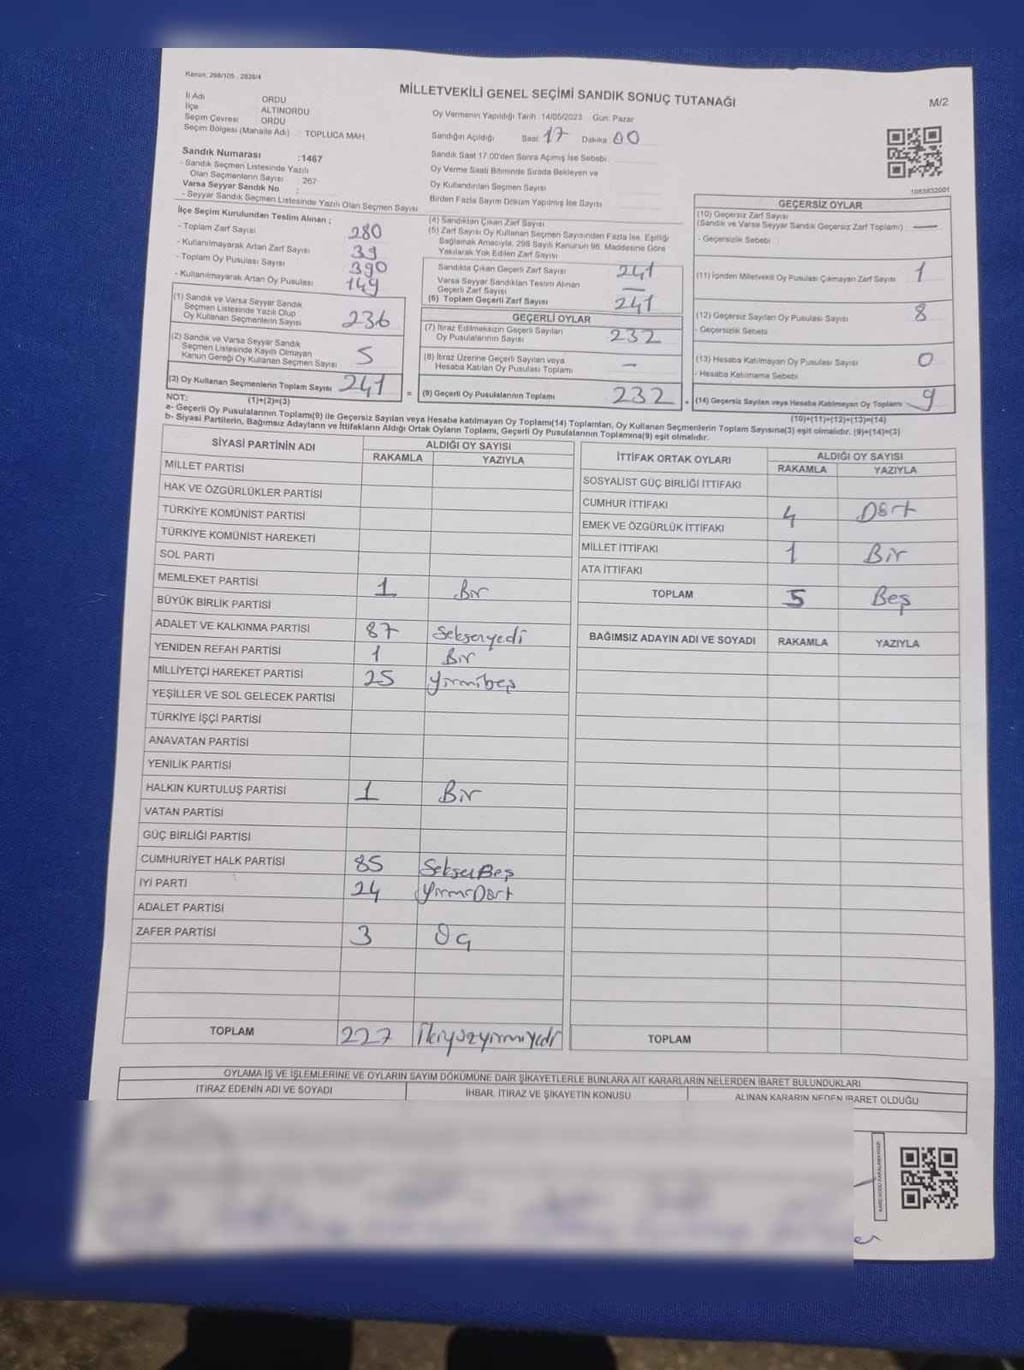 Kanun: 298/105 , 2839/4
MİLLETVEKİLİ GENEL SEÇİMİ SANDIK SONUÇ TUTANAĞI
M/2
İl Adı ORDU
İlçe ALTINORDU
Seçim Çevresi ORDU
Seçim Bölgesi (Mahalle Adı) : TOPLUCA MAH.
Oy Vermenin Yapıldığı Tarih :14/05/2023 Gün: Pazar
Sandığın Açıldığı Saat 17 Dakika 00
Sandık Saat 17.00'den Sonra Açılmış İse Sebebi
Oy Verme Saati Bitiminde Sırada Bekleyen ve
Oy Kullandırılan Seçmen Sayısı
Birden Fazla Sayım Döküm Yapılmış İse Sayısı
1083832001
Sandık Numarası :1467
- Sandık Seçmen Listesinde Yazılı
Olan Seçmenlerin Sayısı : 267
Varsa Seyyar Sandık No :
- Seyyar Sandık Seçmen Listesinde Yazılı Olan Seçmen Sayısı :
İlçe Seçim Kurulundan Teslim Alınan ;
- Toplam Zarf Sayısı 280
- Kullanılmayarak Artan Zarf Sayısı 39
- Toplam Oy Pusulası Sayısı 390
- Kullanılmayarak Artan Oy Pusulası 149
(1) Sandık ve Varsa Seyyar Sandık
Seçmen Listesinde Yazılı Olup
Oy Kullanan Seçmenlerin Sayısı 236
(2) Sandık ve Varsa Seyyar Sandık
Seçmen Listesinde Kayıtlı Olmayan
Kanun Gereği Oy Kullanan Seçmen Sayısı 5
(3) Oy Kullanan Seçmenlerin Toplam Sayısı 241 =
(1)+(2)=(3)
(4) Sandıktan Çıkan Zarf Sayısı
(5) Zarf Sayısı Oy Kullanan Seçmen Sayısından Fazla İse, Eşitliği
Sağlamak Amacıyla, 298 Sayılı Kanunun 98. Maddesine Göre
Yakılarak Yok Edilen Zarf Sayısı
Sandıkta Çıkan Geçerli Zarf Sayısı 241
Varsa Seyyar Sandıktan Teslim Alınan
Geçerli Zarf Sayısı —
(6) Toplam Geçerli Zarf Sayısı 241
GEÇERLİ OYLAR
(7) İtiraz Edilmeksizin Geçerli Sayılan
Oy Pusulalarının Sayısı 232
(8) İtiraz Üzerine Geçerli Sayılan veya
Hesaba Katılan Oy Pusulası Toplamı —
(9) Geçerli Oy Pusulalarının Toplamı 232 +
GEÇERSİZ OYLAR
(10) Geçersiz Zarf Sayısı
(Sandık ve Varsa Seyyar Sandık Geçersiz Zarf Toplamı) —
- Geçersizlik Sebebi
(11) İçinden Milletvekili Oy Pusulası Çıkmayan Zarf Sayısı 1
(12) Geçersiz Sayılan Oy Pusulası Sayısı 8
- Geçersizlik Sebebi
(13) Hesaba Katılmayan Oy Pusulası Sayısı 0
- Hesaba Katılmama Sebebi
(14) Geçersiz Sayılan veya Hesaba Katılmayan Oy Toplamı 9
(10)+(11)+(12)+(13)=(14)
NOT:
a- Geçerli Oy Pusulalarının Toplamı(9) ile Geçersiz Sayılan veya Hesaba katılmayan Oy Toplamı(14) Toplamları, Oy Kullanan Seçmenlerin Toplam Sayısına(3) eşit olmalıdır. (9)+(14)=(3)
b- Siyasi Partilerin, Bağımsız Adayların ve İttifakların Aldığı Ortak Oyların Toplamı, Geçerli Oy Pusulalarının Toplamına(9) eşit olmalıdır.
SİYASİ PARTİNİN ADI ALDIĞI OY SAYISI
RAKAMLA YAZIYLA
MİLLET PARTİSİ
HAK VE ÖZGÜRLÜKLER PARTİSİ
TÜRKİYE KOMÜNİST PARTİSİ
TÜRKİYE KOMÜNİST HAREKETİ
SOL PARTİ
MEMLEKET PARTİSİ 1 Bir
BÜYÜK BİRLİK PARTİSİ
ADALET VE KALKINMA PARTİSİ 87 Seksenyedi
YENİDEN REFAH PARTİSİ 1 Bir
MİLLİYETÇİ HAREKET PARTİSİ 25 Yirmibeş
YEŞİLLER VE SOL GELECEK PARTİSİ
TÜRKİYE İŞÇİ PARTİSİ
ANAVATAN PARTİSİ
YENİLİK PARTİSİ
HALKIN KURTULUŞ PARTİSİ 1 Bir
VATAN PARTİSİ
GÜÇ BİRLİĞİ PARTİSİ
CUMHURİYET HALK PARTİSİ 85 SeksenBeş
İYİ PARTİ 24 YirmiDört
ADALET PARTİSİ
ZAFER PARTİSİ 3 Üç
TOPLAM 227 İkiyüzyirmiyedi
İTTİFAK ORTAK OYLARI ALDIĞI OY SAYISI
RAKAMLA YAZIYLA
SOSYALİST GÜÇ BİRLİĞİ İTTİFAKI
CUMHUR İTTİFAKI 4 Dört
EMEK VE ÖZGÜRLÜK İTTİFAKI
MİLLET İTTİFAKI 1 Bir
ATA İTTİFAKI
TOPLAM 5 Beş
BAĞIMSIZ ADAYIN ADI VE SOYADI RAKAMLA YAZIYLA
TOPLAM
OYLAMA İŞ VE İŞLEMLERİNE VE OYLARIN SAYIM DÖKÜMÜNE DAİR ŞİKAYETLERLE BUNLARA AİT KARARLARIN NELERDEN İBARET BULUNDUKLARI
İTİRAZ EDENİN ADI VE SOYADI İHBAR, İTİRAZ VE ŞİKAYETİN KONUSU ALINAN KARARIN NEDEN İBARET OLDUĞU